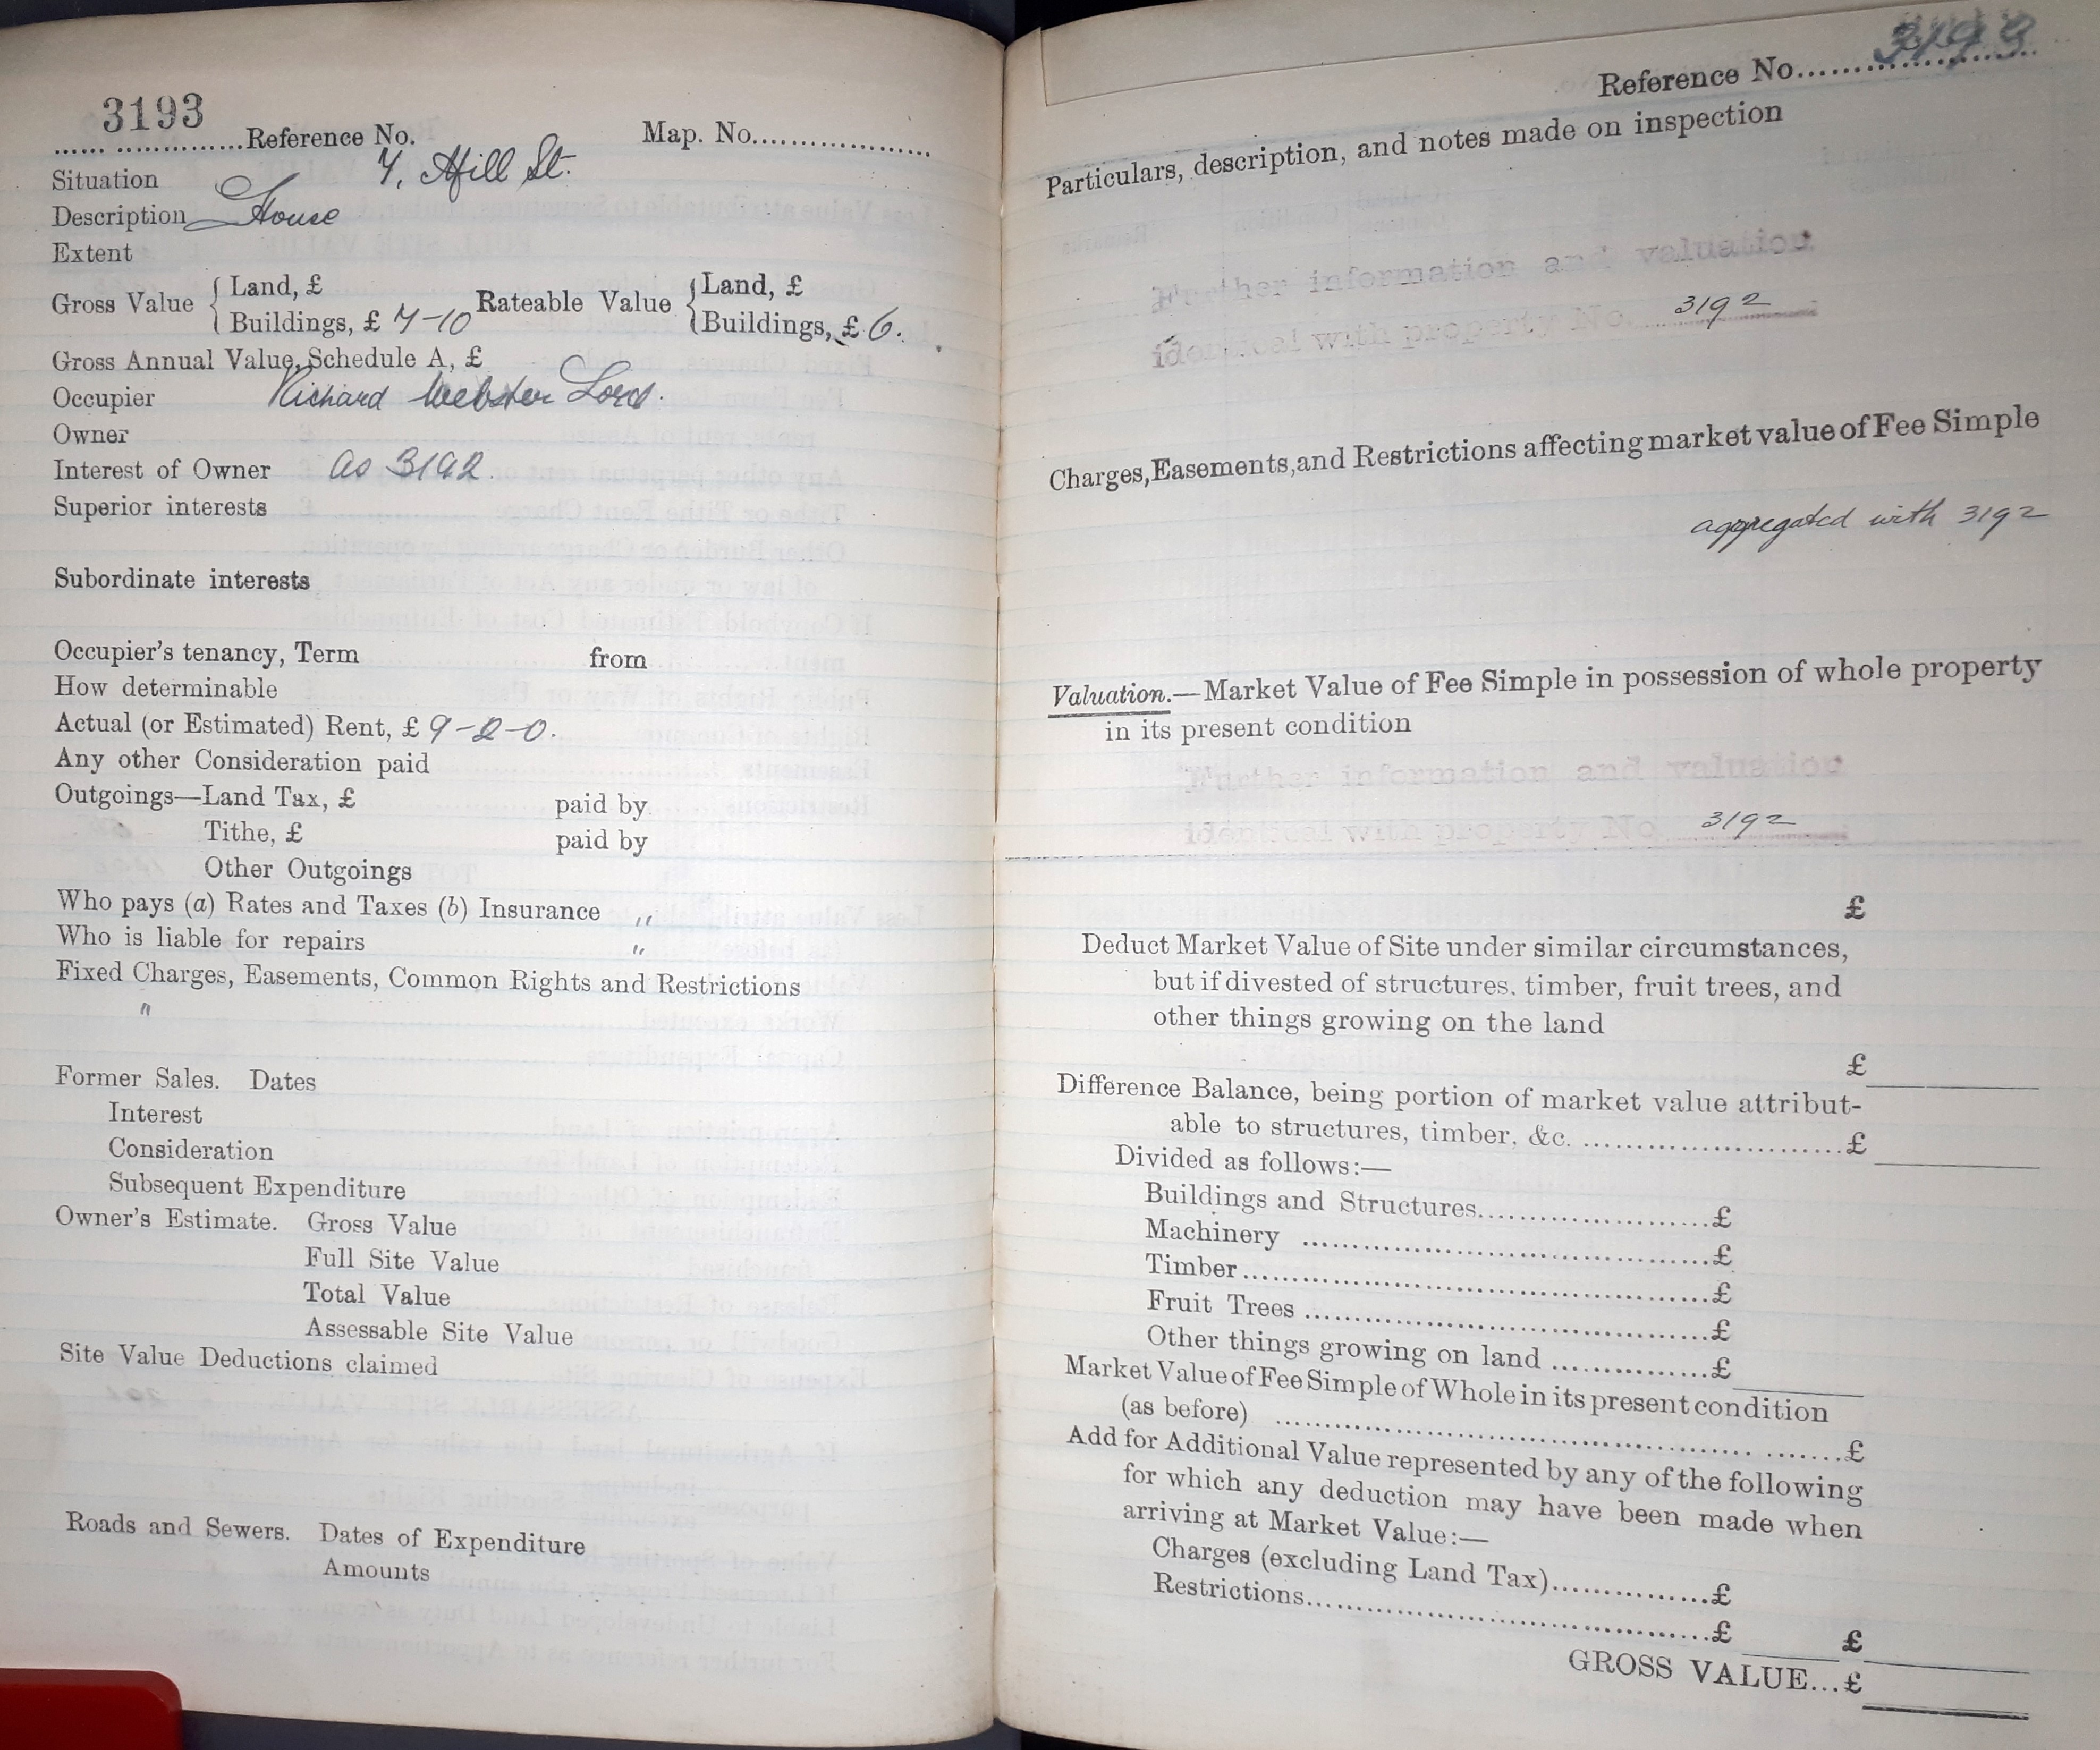 3193
...... ...............Reference No. Map. No.....................
Situation 7, Hill St.
Description House
Extent
Gross Value { Land, £ Rateable Value { Land, £
Buildings, £ 7-10 Buildings, £ 6.
Gross Annual Value, Schedule A, £
Occupier Richard Webster Lord.
Owner
Interest of Owner as 3192.
Superior interests
Subordinate interests
Occupier's tenancy, Term from
How determinable
Actual (or Estimated) Rent, £ 9-2-0.
Any other Consideration paid
Outgoings—Land Tax, £ paid by
Tithe, £ paid by
Other Outgoings
Who pays (a) Rates and Taxes (b) Insurance "
Who is liable for repairs "
Fixed Charges, Easements, Common Rights and Restrictions
"
Former Sales. Dates
Interest
Consideration
Subsequent Expenditure
Owner's Estimate. Gross Value
Full Site Value
Total Value
Assessable Site Value
Site Value Deductions claimed
Roads and Sewers. Dates of Expenditure
Amounts
Reference No........................ 3193
Particulars, description, and notes made on inspection
Further information and valuation
identical with property No. 3192
Charges, Easements, and Restrictions affecting market value of Fee Simple
aggregated with 3192
Valuation.—Market Value of Fee Simple in possession of whole property
in its present condition
Further information and valuation
identical with property No. 3192
£
Deduct Market Value of Site under similar circumstances,
but if divested of structures, timber, fruit trees, and
other things growing on the land
£
Difference Balance, being portion of market value attribut-
able to structures, timber, &c. ..............................£
Divided as follows:—
Buildings and Structures...........................£
Machinery ..............................................£
Timber......................................................£
Fruit Trees ..............................................£
Other things growing on land ..................£
Market Value of Fee Simple of Whole in its present condition
(as before) ..................................................................£
Add for Additional Value represented by any of the following
for which any deduction may have been made when
arriving at Market Value:—
Charges (excluding Land Tax)..................£
Restrictions..............................................£ £
GROSS VALUE...£